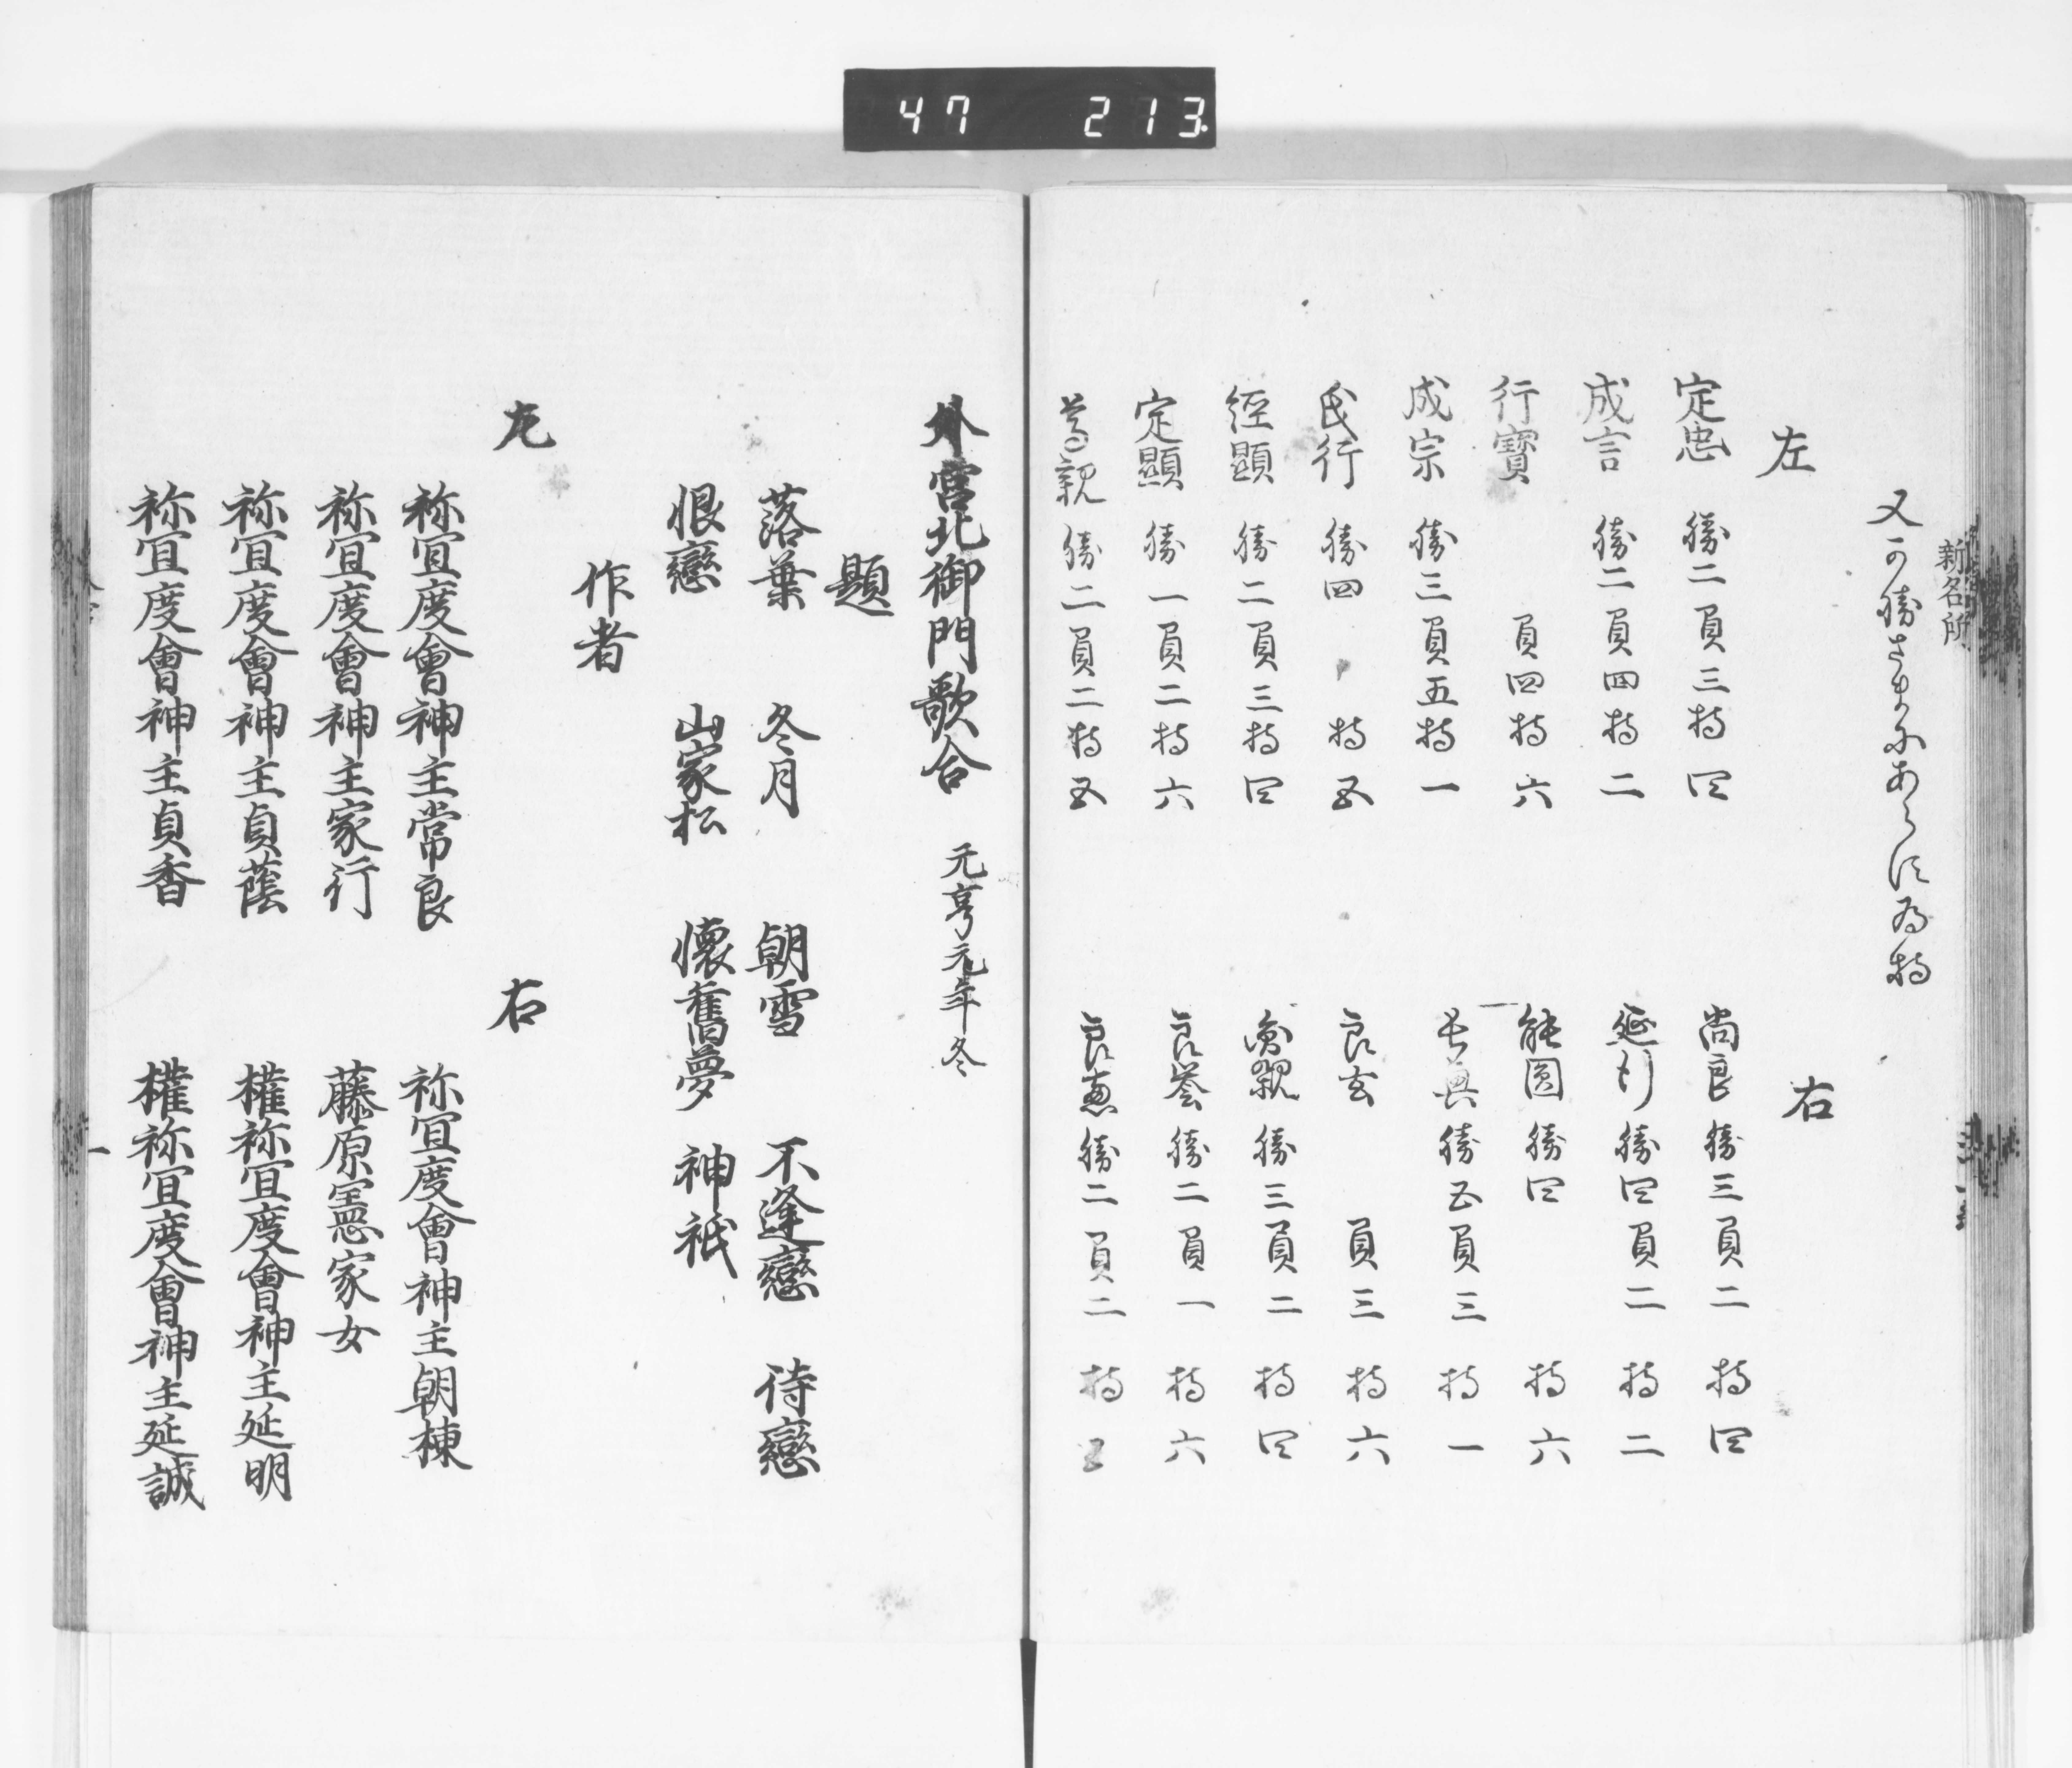 47 213
新名所
又可勝さまにあらに為持
左
右
定忠 勝二 負三 持四
尚良 勝三 負二 持四
成言 勝二 負四 持二
延行 勝四 負二 持二
行寶 負四 持六
能圓 勝四 持六
成宗 勝三 負五 持一
長興 勝五 負三 持一
氏行 勝四 持五
良玄 負三 持六
經顯 勝二 負三 持四
勝三 負二 持四
定顯 勝一 負二 持六
良誉 勝二 負一 持六
尊親 勝二 負二 持五
良恵 勝二 負二 持五
外宮北御門歌合 元亨元年冬
題
落葉 冬月 朝雪 不逢戀 待戀
恨戀 山家松 懷舊夢 神祇
作者
左
右
祢宜度會神主常良
祢宜度會神主朝棟
祢宜度會神主家行
藤原定忠家女
祢宜度會神主貞蔭
權祢宜度會神主延明
祢宜度會神主貞香
權祢宜度會神主延誠
一